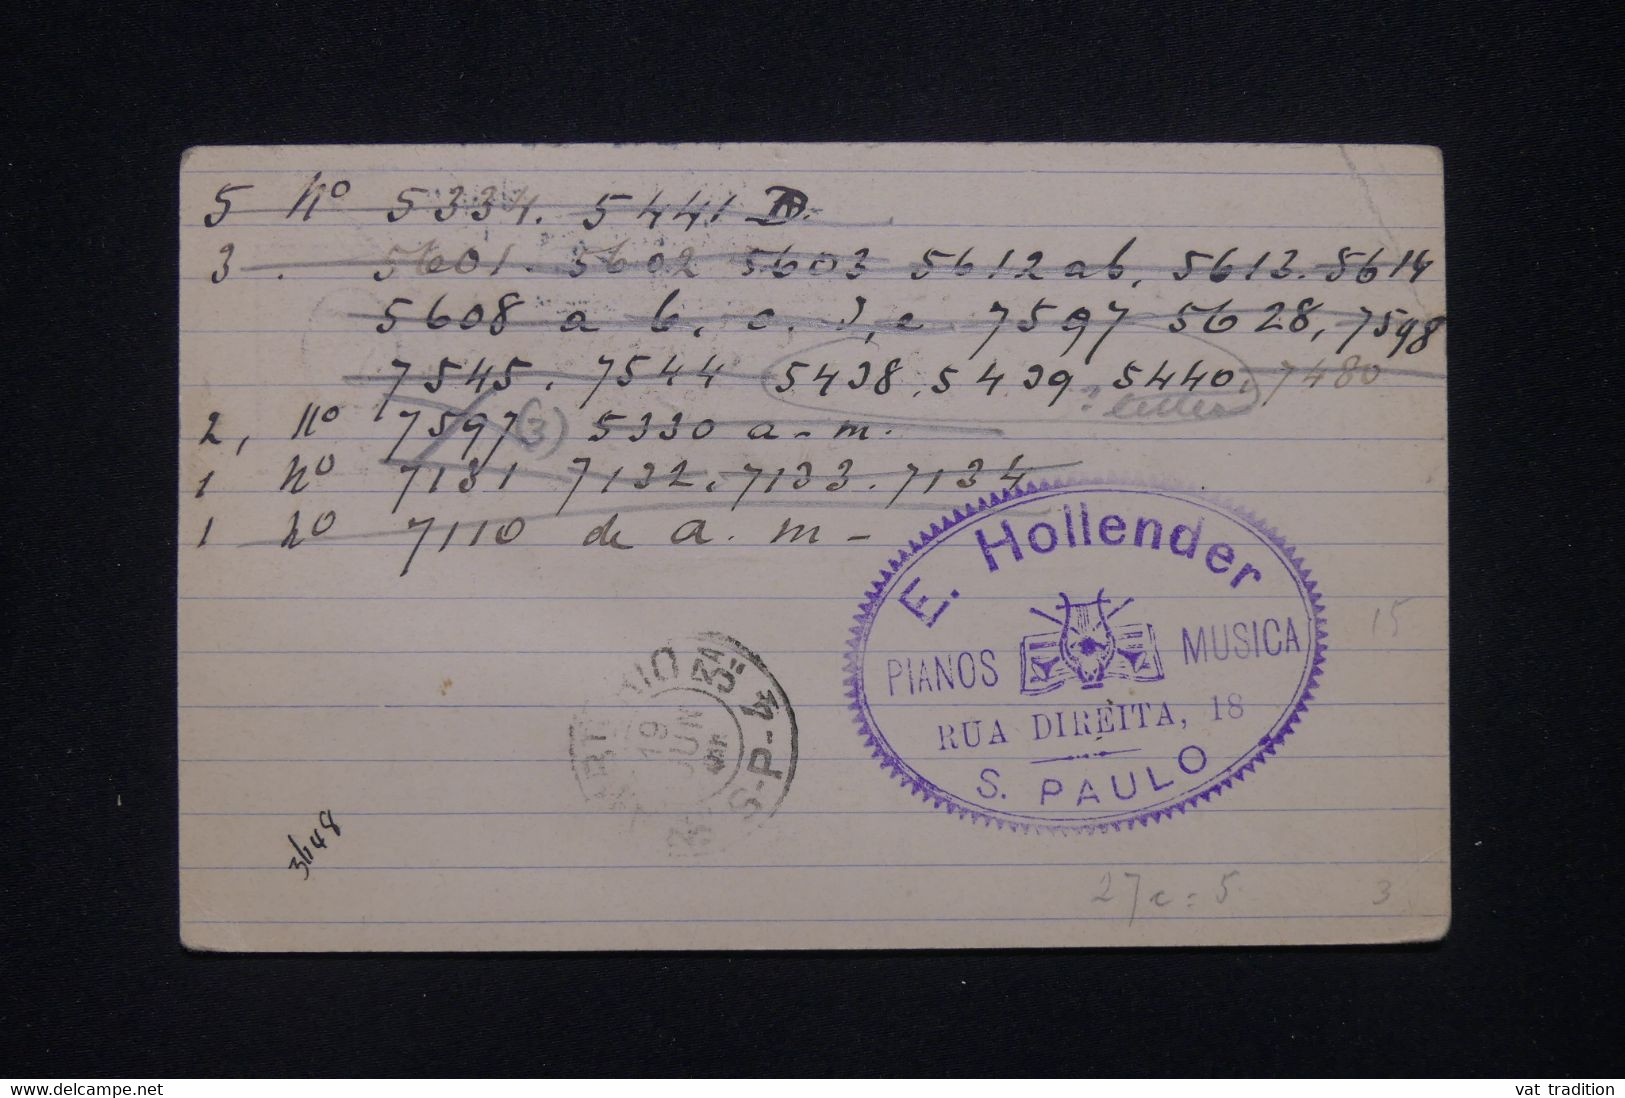 5 No 5334. 5441
3. 5601. 5602 5603 5612 ab, 5613. 5614
5608 a b, c. d, e 7597 5628, 7598
7545. 7544 5438, 5439 5440, 7480
2, No 7597 (3) 5330 a-m.
1 No 7131 7132. 7133. 7134
1 No 7110 de a. m-
E. Hollender
PIANOS MUSICA
RUA DIREITA, 18
S. PAULO
19
JUN
S-P-4
15
27c = 5
3
vat tradition
www.delcampe.net